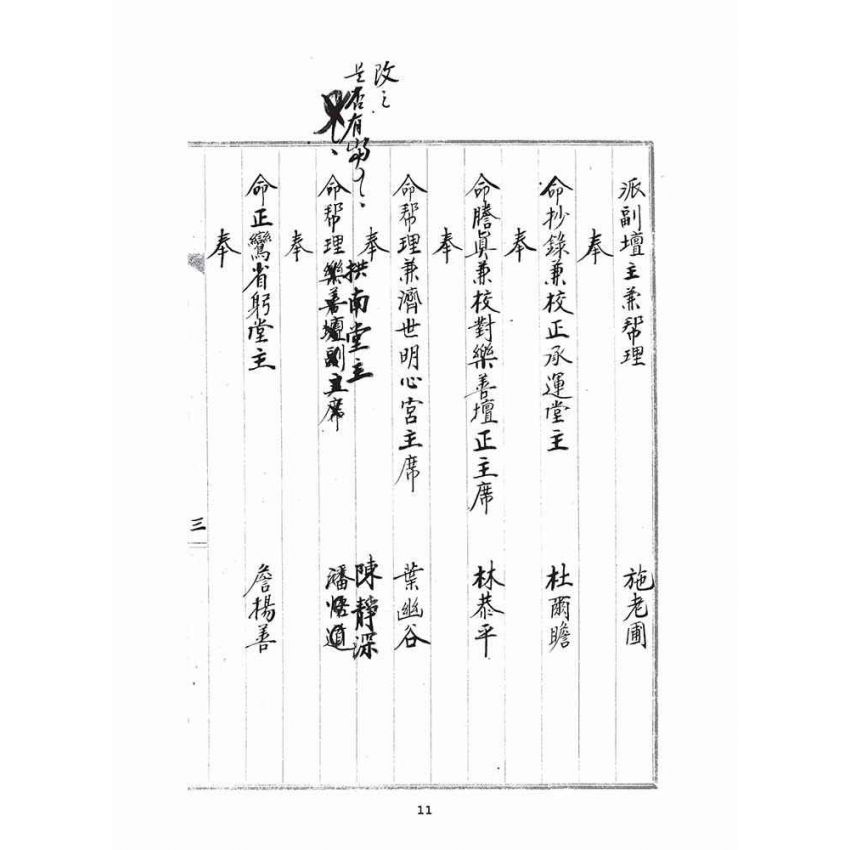 改之
是否有
派副壇主兼帮理 施老圃
奉
命抄錄兼校正承運堂主 杜爾瞻
奉
命謄眞兼校對樂善壇正主席 林恭平
奉
命帮理兼濟世明心宮主席 葉幽谷
奉
拱南堂主 陳靜深
命帮理樂善壇副主席 潘悟道
奉
命正鸞省躬堂主 詹揚善
奉
三
11